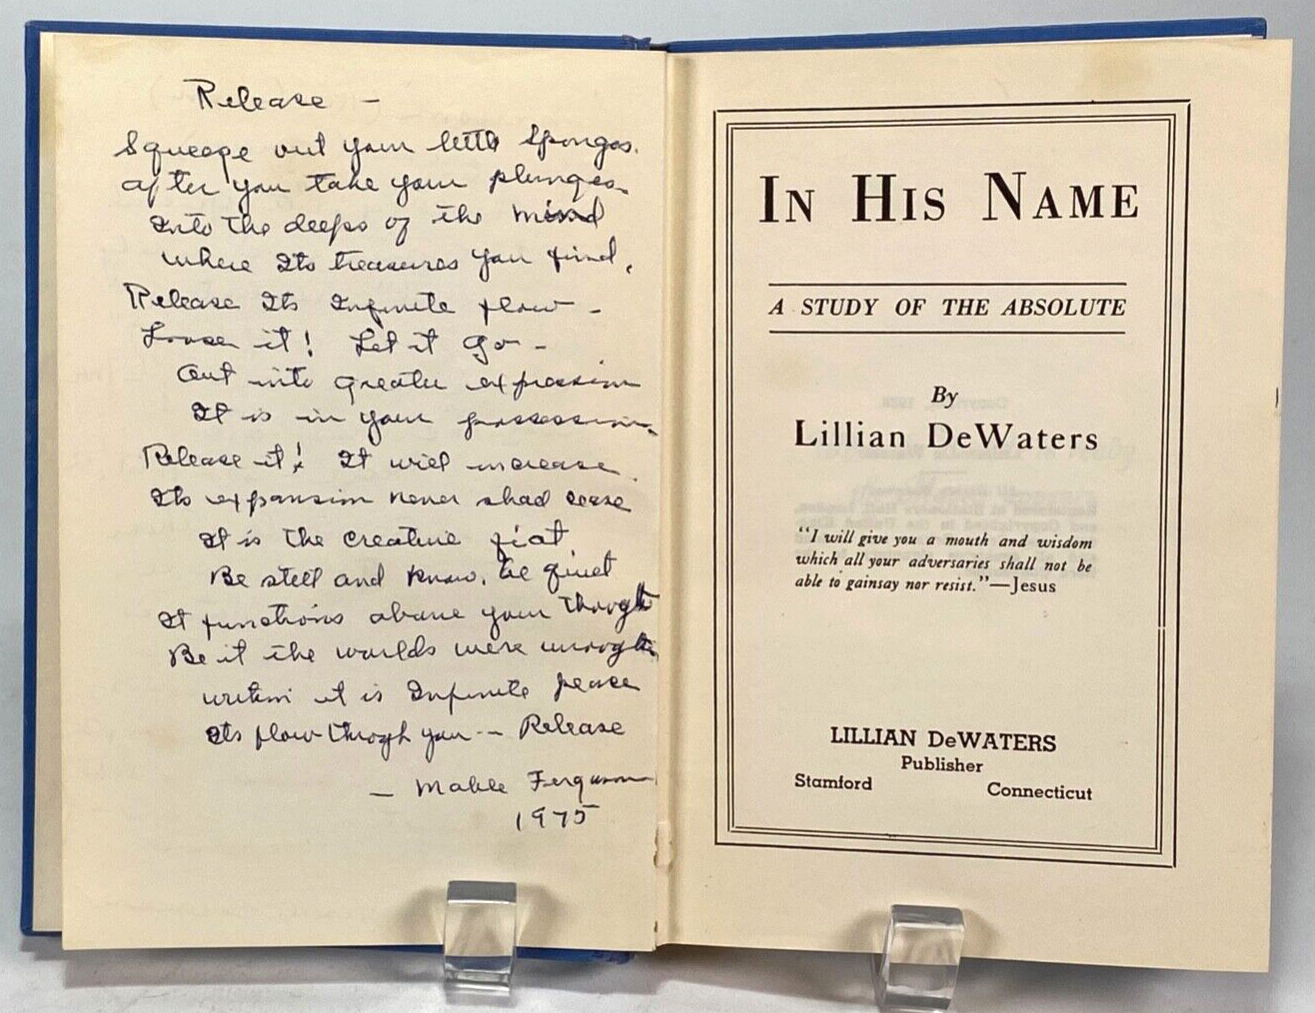 Release –
Squeeze out your little sponges.
After you take your plunges
Into the deeps of the mind
where Its treasures you find.
Release Its Infinite flow –
Loose it! Let it go –
Out into greater expression
It is in your possession.
Release it! It will increase
Its expansion never shall cease
It is the creative fiat
Be still and know, be quiet
It functions above your thought
By it the worlds were wrought
within it is Infinite peace
Its flow through you -- Release
– Mable Ferguson
1975
IN HIS NAME
A STUDY OF THE ABSOLUTE
By
Lillian DeWaters
"I will give you a mouth and wisdom
which all your adversaries shall not be
able to gainsay nor resist."—Jesus
LILLIAN DeWATERS
Publisher
Stamford Connecticut